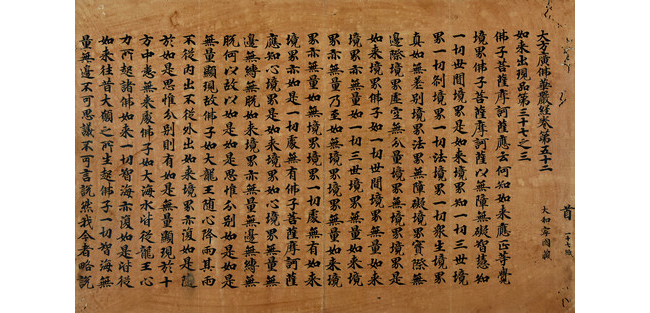 首
大方廣佛華嚴經卷第五十二 大和寧國藏
如來出現品第三十七之三
佛子菩薩摩訶薩應云何知如來應正等覺
境界佛子菩薩摩訶薩以無障無礙智慧知
一切世間境界是如來境界知一切三世境
界一切剎境界一切法境界一切衆生境界
真如無差別境界法界無障礙境界實際無
邊際境界虛空無分量境界無境界境界是
如來境界佛子如一切世間境界無量如來
境界亦無量如一切三世境界無量如來境
界亦無量乃至如無境界境界無量如來境
界亦無量如無境界境界一切處無有如來
境界亦如是一切處無有佛子菩薩摩訶薩
應知心境界是如來境界如心境界無量無
邊無縛無脫如來境界亦無量無邊無縛無
脫何以故以如是如是思惟分別如是如是
無量顯現故佛子如大龍王隨心降雨其雨
不從內出不從外出如來境界亦復如是隨
於如是思惟分別則有如是無量顯現於十
方中悉無來處佛子如大海水皆從龍王心
力所起諸佛如來一切智海亦復如是皆從
如來往昔大願之所生起佛子一切智海無
量無邊不可思議不可言說然我今者略說